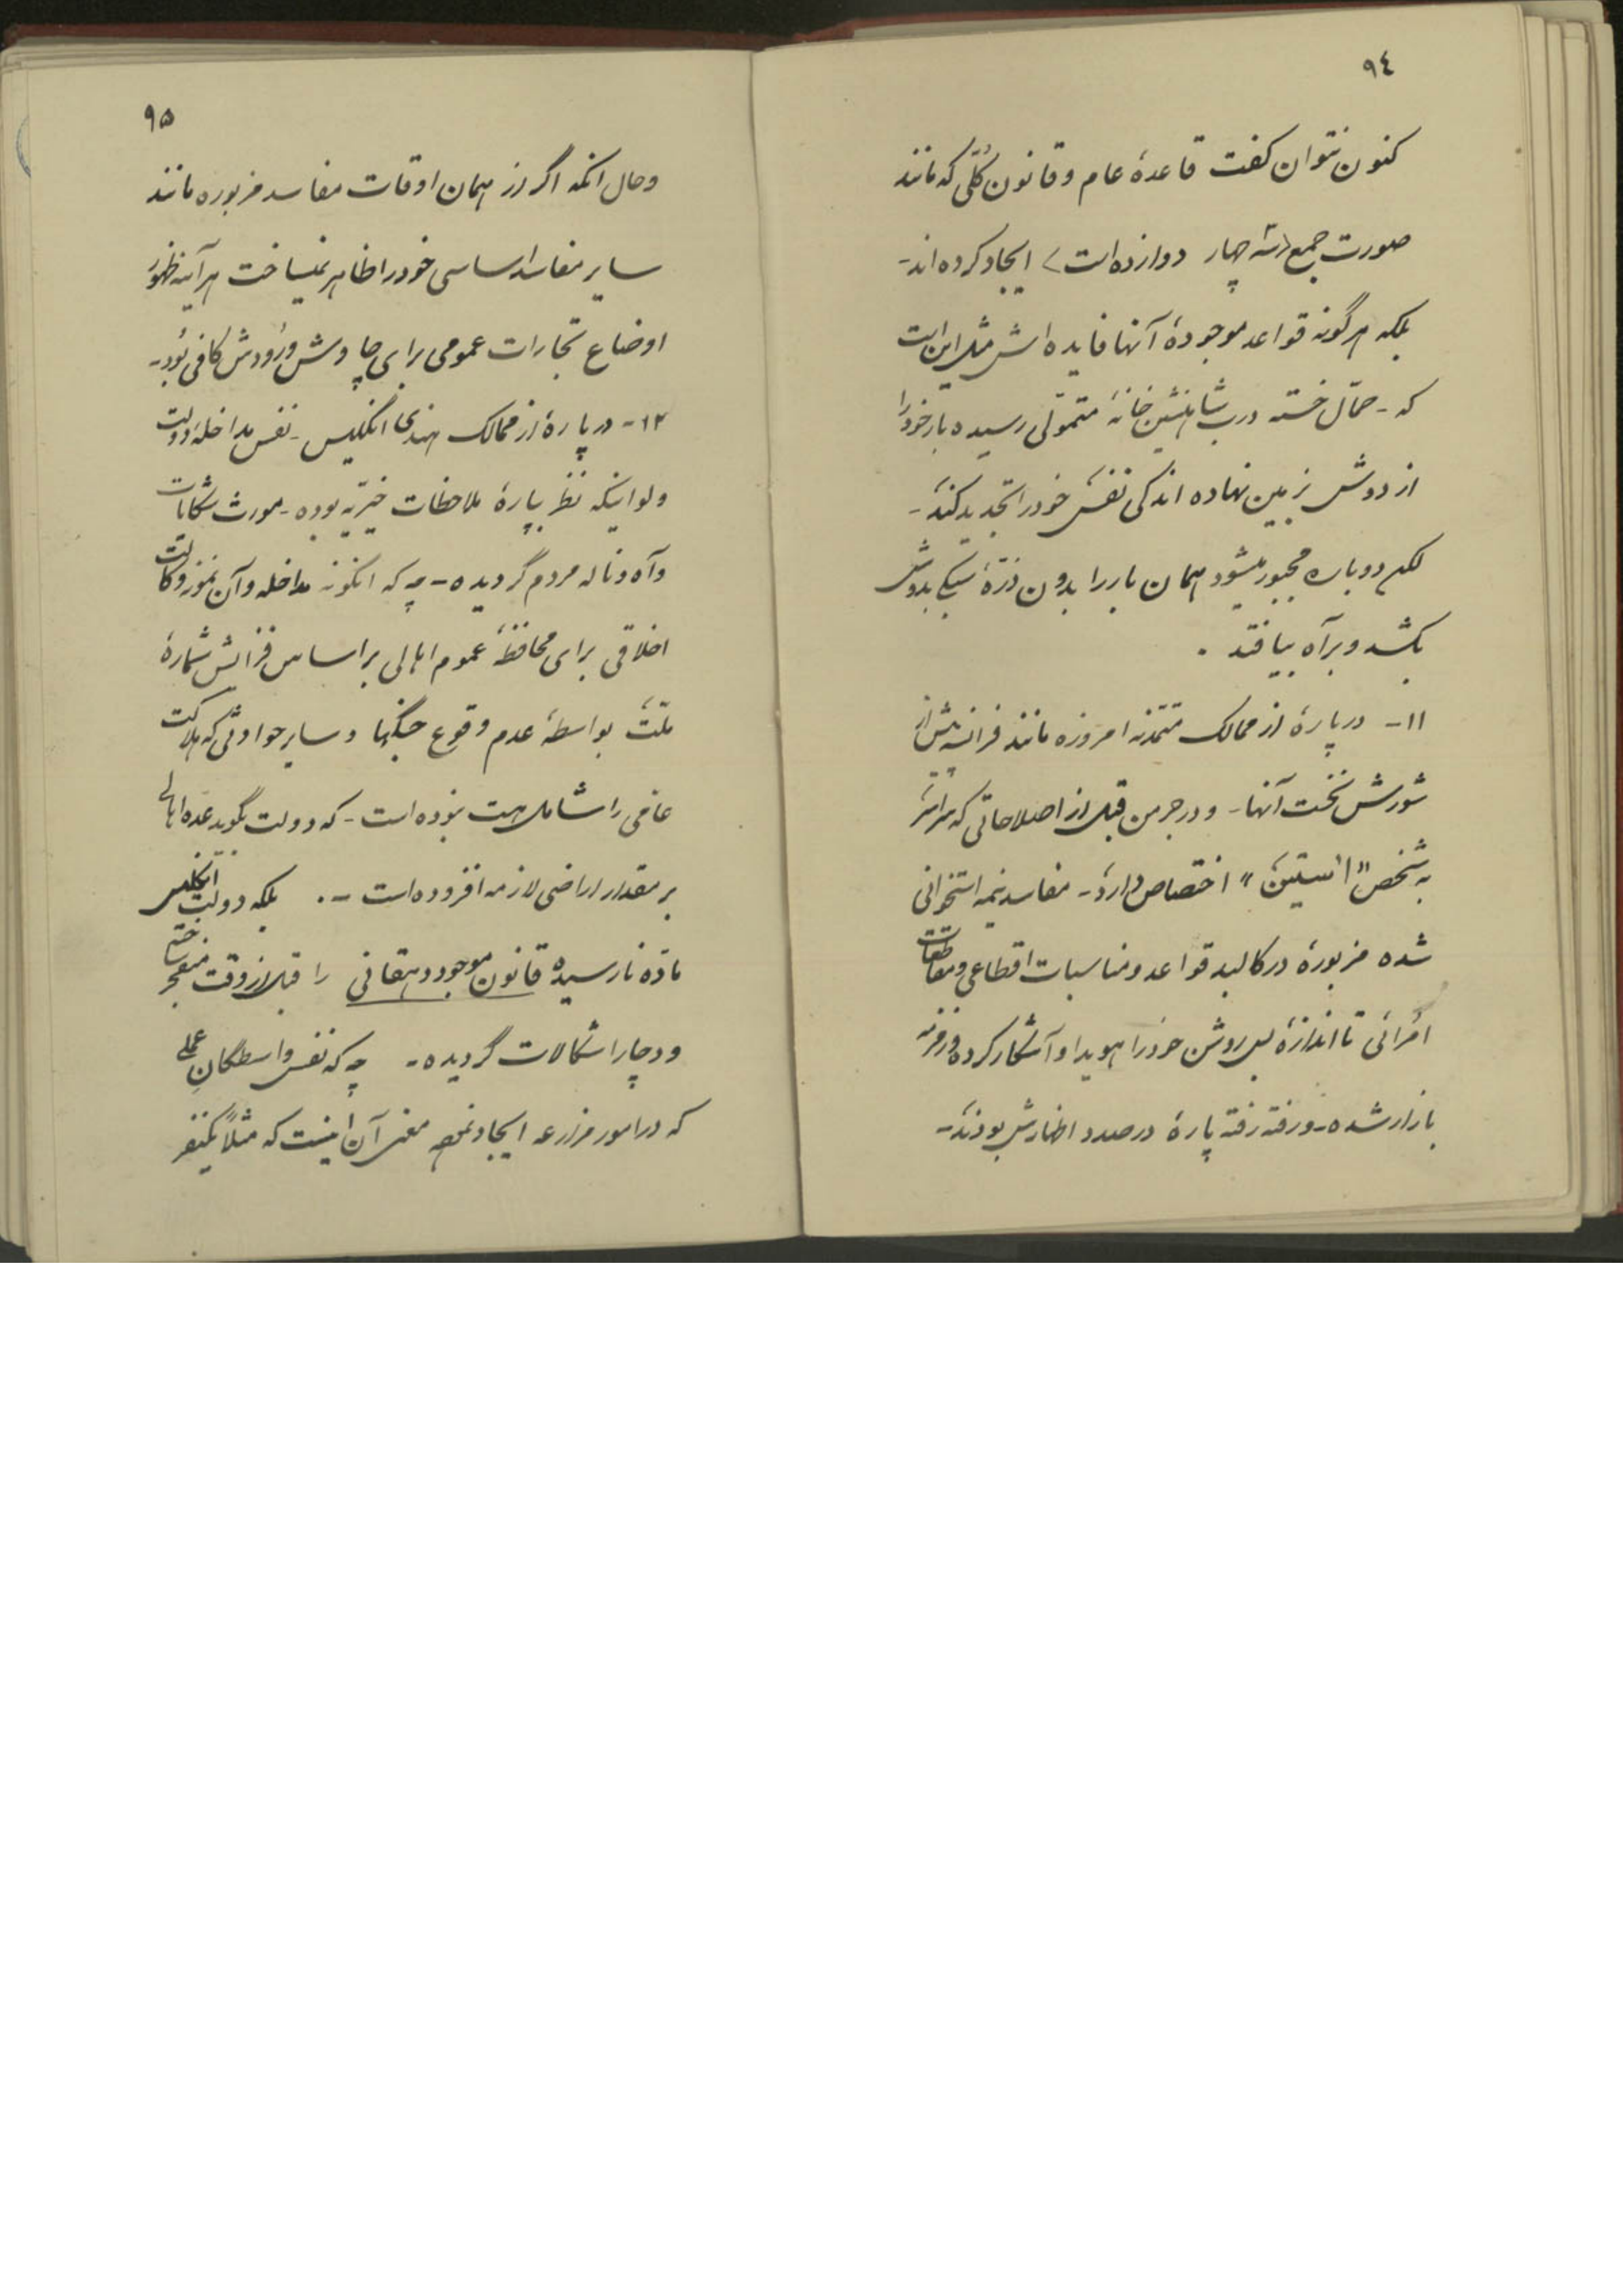 ۹٤
کنون نتوان گفت قاعدهٔ عام و قانون کُلّی که مانند
صورت جمع (سه چهار دوازده است) ایجاد کرده‌اند-
بلکه هرگونه قواعد موجودهٔ آنها فایده اش مثل این است
که - حمّال خسته درب شاه‌نشین خانهٔ متموّلی رسیده بار خود را
از دوش بزمین نهاده اندکی نفس خود را تجدید کند-
لکن دوباره مجبور میشود همان بار را بدون ذرّهٔ سبکی بدوش
بکشد و براه بیافتد .
۱۱- در پارهٔ از ممالک متمدّنه امروزه مانند فرانسه پیش از
شورش نخست آنها - و در جرمن قبل از اصلاحاتی که
به شخص "استین" اختصاص دارد- مفاسد نیمه استخوانی
شده مزبوره در کالبد قواعد و مناسبات اقطاعی و مقاطعات
اُمرائی تا اندازهٔ بس روشن خود را هویدا و آشکار کرده
بازار شده - و رفته رفته پارهٔ درصدد اظهارش بودند-
۹۵
و حال انکه اگر در همان اوقات مفاسد مزبوره مانند
سایر مفاسد اساسی خود را ظاهر نمیساخت هرآینه ظهور
اوضاع تجارات عمومی برای چاوش ورودش کافی بُود-
۱۲- در پارهٔ از ممالک هندی انگلیس - نفس مداخلهٔ دولت
ولو اینکه نظر بپارهٔ ملاحظات خیریّه بوده - مورث شکایات
و آه و ناله مردم گردیده - چه که انگونه مداخله و آن نموز وکالت
اخلاقی برای محافظهٔ عموم اهالی بر اساس فزایش شمارهٔ
ملّت بواسطهٔ عدم وقوع جنگها و سایر حوادثی که هلاکت
عامی را شامل است نبوده است - که دولت بگوید عده اهالی
بر مقدار اراضی لازمه افزوده است -. بلکه دولت انگلیس
مادّه نارسیده قانون موجود دهقانی را قبل از وقت منفجر ساخته
و دچار اشکالات گردیده - چه که نفس واسطگانِ عملی
که در امور مزارعه ایجاد نموده معنی آن اینست که مثلاً یکنفر